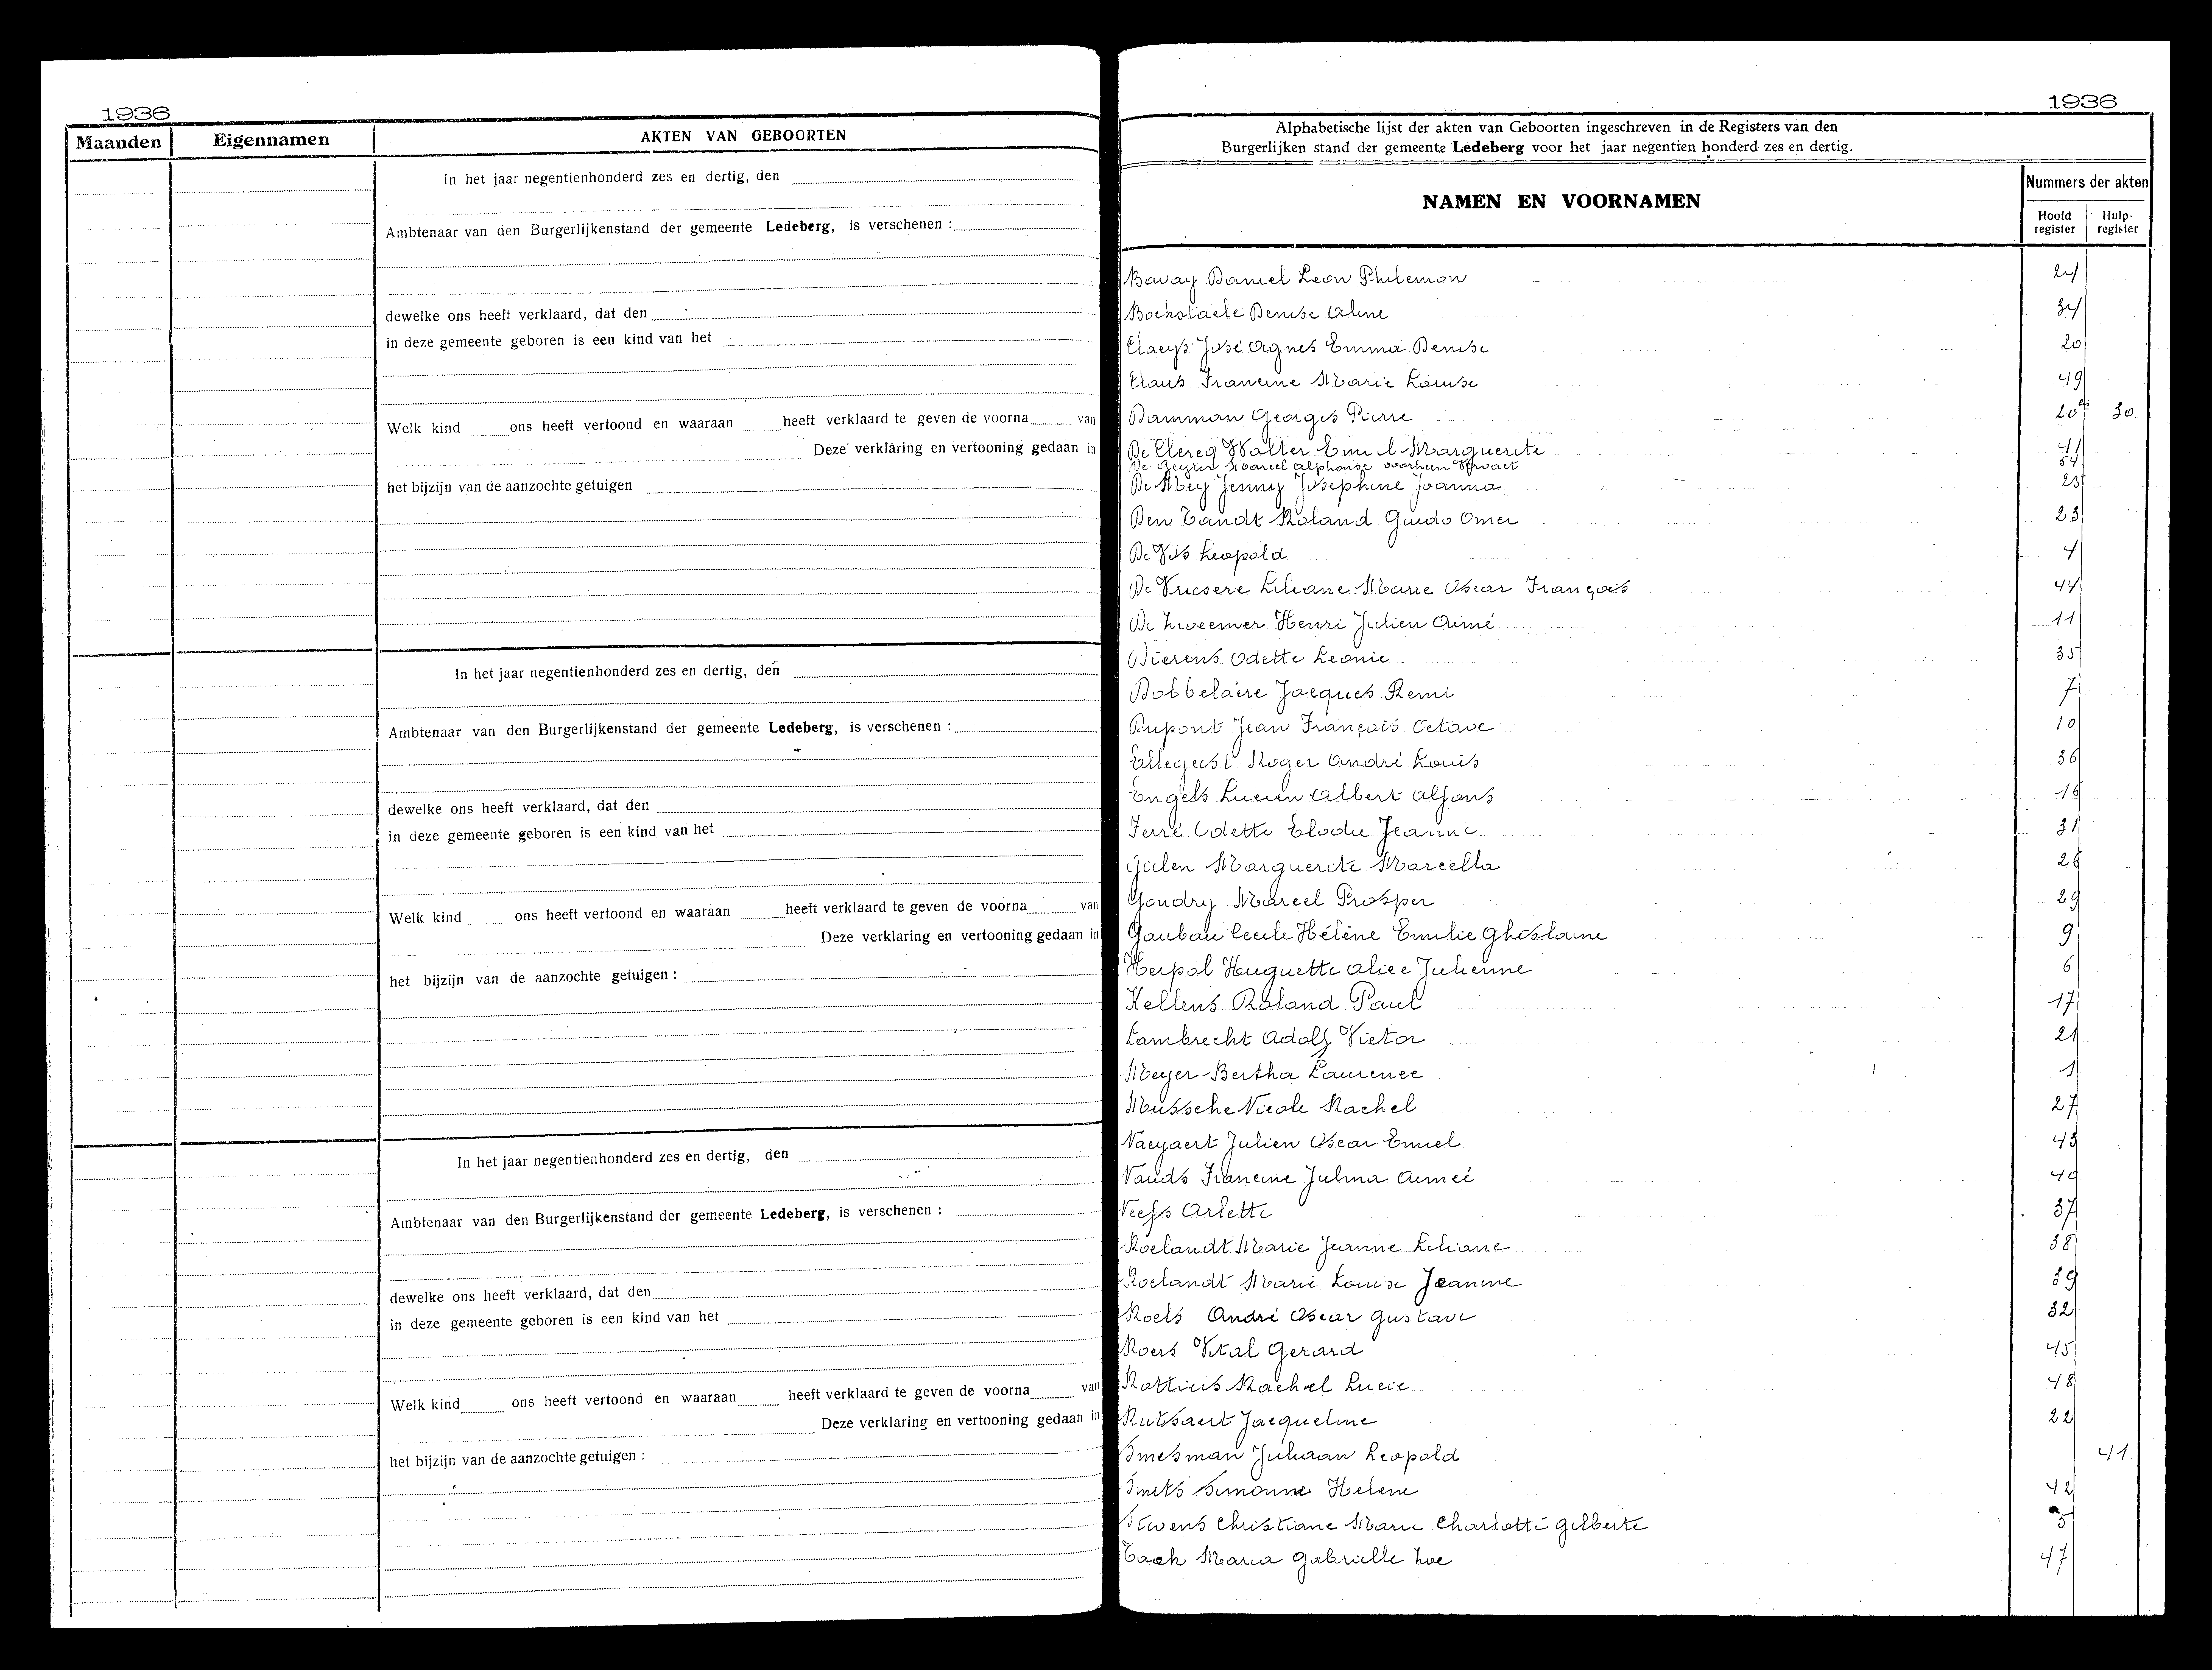 1936
Maanden Eigennamen AKTEN VAN GEBOORTEN
In het jaar negentienhonderd zes en dertig, den
Ambtenaar van den Burgerlijkenstand der gemeente Ledeberg, is verschenen :
dewelke ons heeft verklaard, dat den
in deze gemeente geboren is een kind van het
Welk kind ons heeft vertoond en waaraan heeft verklaard te geven de voorna van
Deze verklaring en vertooning gedaan in
het bijzijn van de aanzochte getuigen
In het jaar negentienhonderd zes en dertig, den
Ambtenaar van den Burgerlijkenstand der gemeente Ledeberg, is verschenen :
dewelke ons heeft verklaard, dat den
in deze gemeente geboren is een kind van het
Welk kind ons heeft vertoond en waaraan heeft verklaard te geven de voorna van
Deze verklaring en vertooning gedaan in
het bijzijn van de aanzochte getuigen :
In het jaar negentienhonderd zes en dertig, den
Ambtenaar van den Burgerlijkenstand der gemeente Ledeberg, is verschenen :
dewelke ons heeft verklaard, dat den
in deze gemeente geboren is een kind van het
Welk kind ons heeft vertoond en waaraan heeft verklaard te geven de voorna van
Deze verklaring en vertooning gedaan in
het bijzijn van de aanzochte getuigen :
1936
Alphabetische lijst der akten van Geboorten ingeschreven in de Registers van den
Burgerlijken stand der gemeente Ledeberg voor het jaar negentien honderd zes en dertig.
NAMEN EN VOORNAMEN
Nummers der akten
Hoofd register Hulp-register
Bavay Daniel Leon Philemon 24
Bockstaele Denise Aline 34
Claeys José Agnes Emma Denise 20
Claus Francine Marie Louise 49
Damman Georges Pierre 20 30
De Clercq Walter Emiel Marguerite 41
De Geyter Marcel Alphonse voorheen 54
De Mey Jenny Josephine Joanna 25
Den Tandt Roland Guido Omer 23
De Vos Leopold 4
De Vriesere Liliane Marie Oscar François 44
De Zweemer Henri Julien Aimé 11
Dierens Odette Leonie 35
Dobbelaire Jacques Remi 7
Dupont Jean François Octave 10
Ellegeest Roger André Louis 36
Engels Lucien Albert Alfons 16
Ferré Odette Elodie Jeanne 31
Gielen Marguerite Marcella 26
Gondry Marcel Prosper 29
Gaubau Cecile Hélène Emilie Ghislaine 9
Herpol Huguette Alice Julienne 6
Kellens Roland Paul 17
Lambrecht Adolf Victor 21
Meyer Bertha Laurence 1
Mussche Nicole Rachel 27
Naeyaert Julien Oscar Emiel 43
Nauds Francine Julma Aimeé 40
Neefs Arlette 37
Roelandt Marie Jeanne Liliane 38
Roelandt Marie Louise Jeanine 39
Roels André Oscar Gustave 32
Roers Vital Gerard 45
Rottiers Rachel Lucie 48
Rutsaert Jacqueline 22
Smesman Juliaan Leopold 41
Smets Simonne Helene 42
Stevens Christiane Marie Charlotte Gilberte 5
Tack Maria Gabrielle Zoe 47